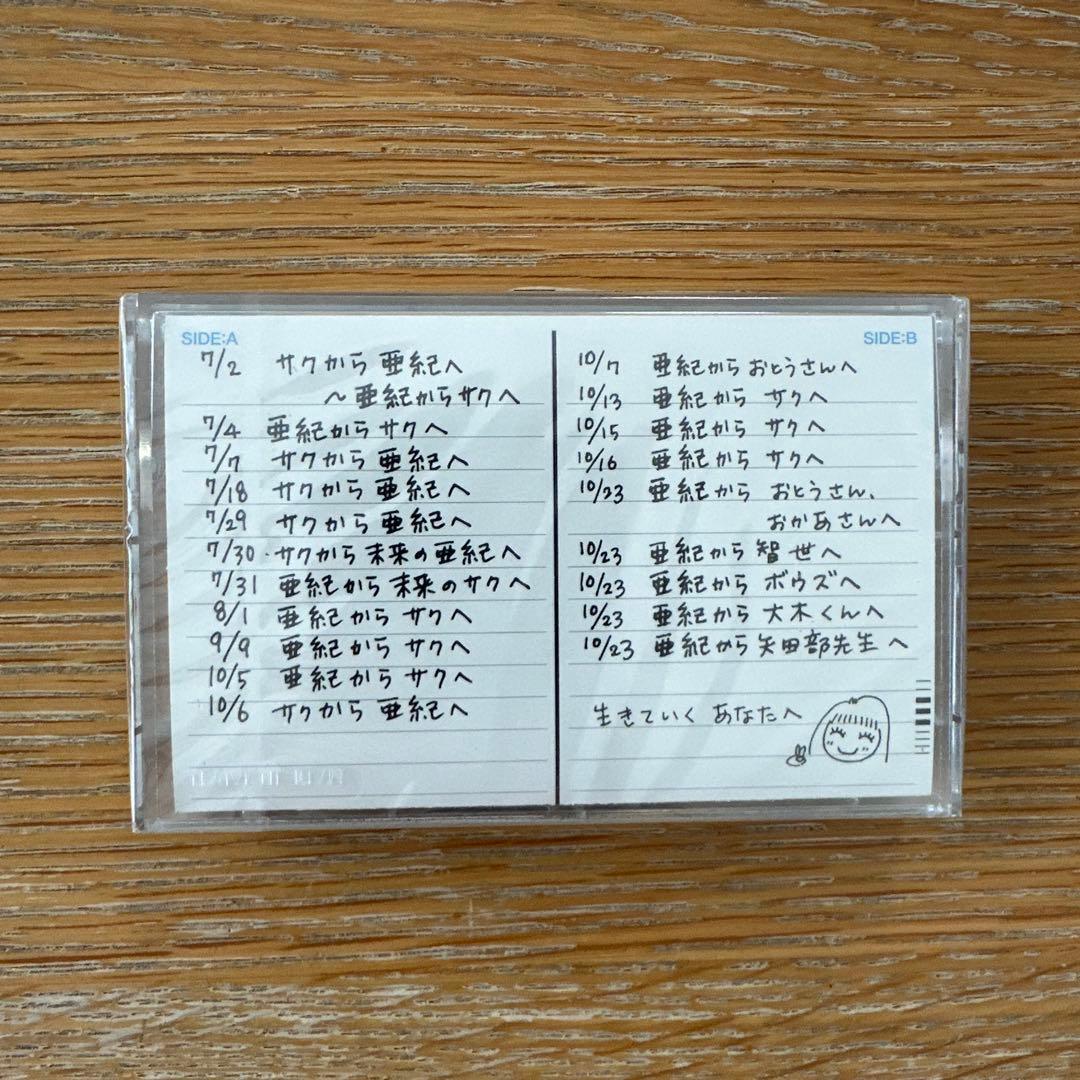 SIDE:A
7/2 サクから亜紀へ
～亜紀からサクへ
7/4 亜紀からサクへ
7/7 サクから亜紀へ
7/18 サクから亜紀へ
7/29 サクから亜紀へ
7/30 サクから未来の亜紀へ
7/31 亜紀から未来のサクへ
8/1 亜紀からサクへ
9/9 亜紀からサクへ
10/5 亜紀からサクへ
10/6 サクから亜紀へ
SIDE:B
10/7 亜紀からおとうさんへ
10/13 亜紀からサクへ
10/15 亜紀からサクへ
10/16 亜紀からサクへ
10/23 亜紀からおとうさん、
おかあさんへ
10/23 亜紀から智世へ
10/23 亜紀からボウズへ
10/23 亜紀から大木くんへ
10/23 亜紀から矢田部先生へ
生きていくあなたへ